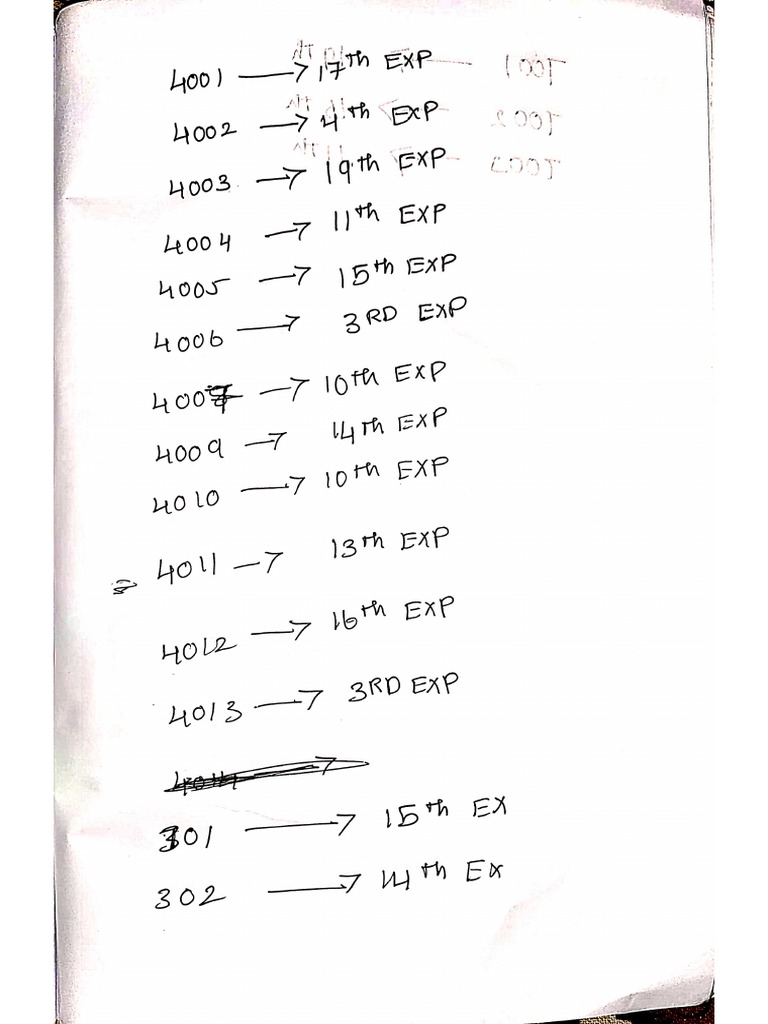 4001 → 17th EXP
4002 → 4th EXP
4003 → 19th EXP
4004 → 11th EXP
4005 → 15th EXP
4006 → 3RD EXP
4007 → 10th EXP
4009 → 14th EXP
4010 → 10th EXP
4011 → 13th EXP
4012 → 16th EXP
4013 → 3RD EXP
301 → 15th EX
302 → 14th EX